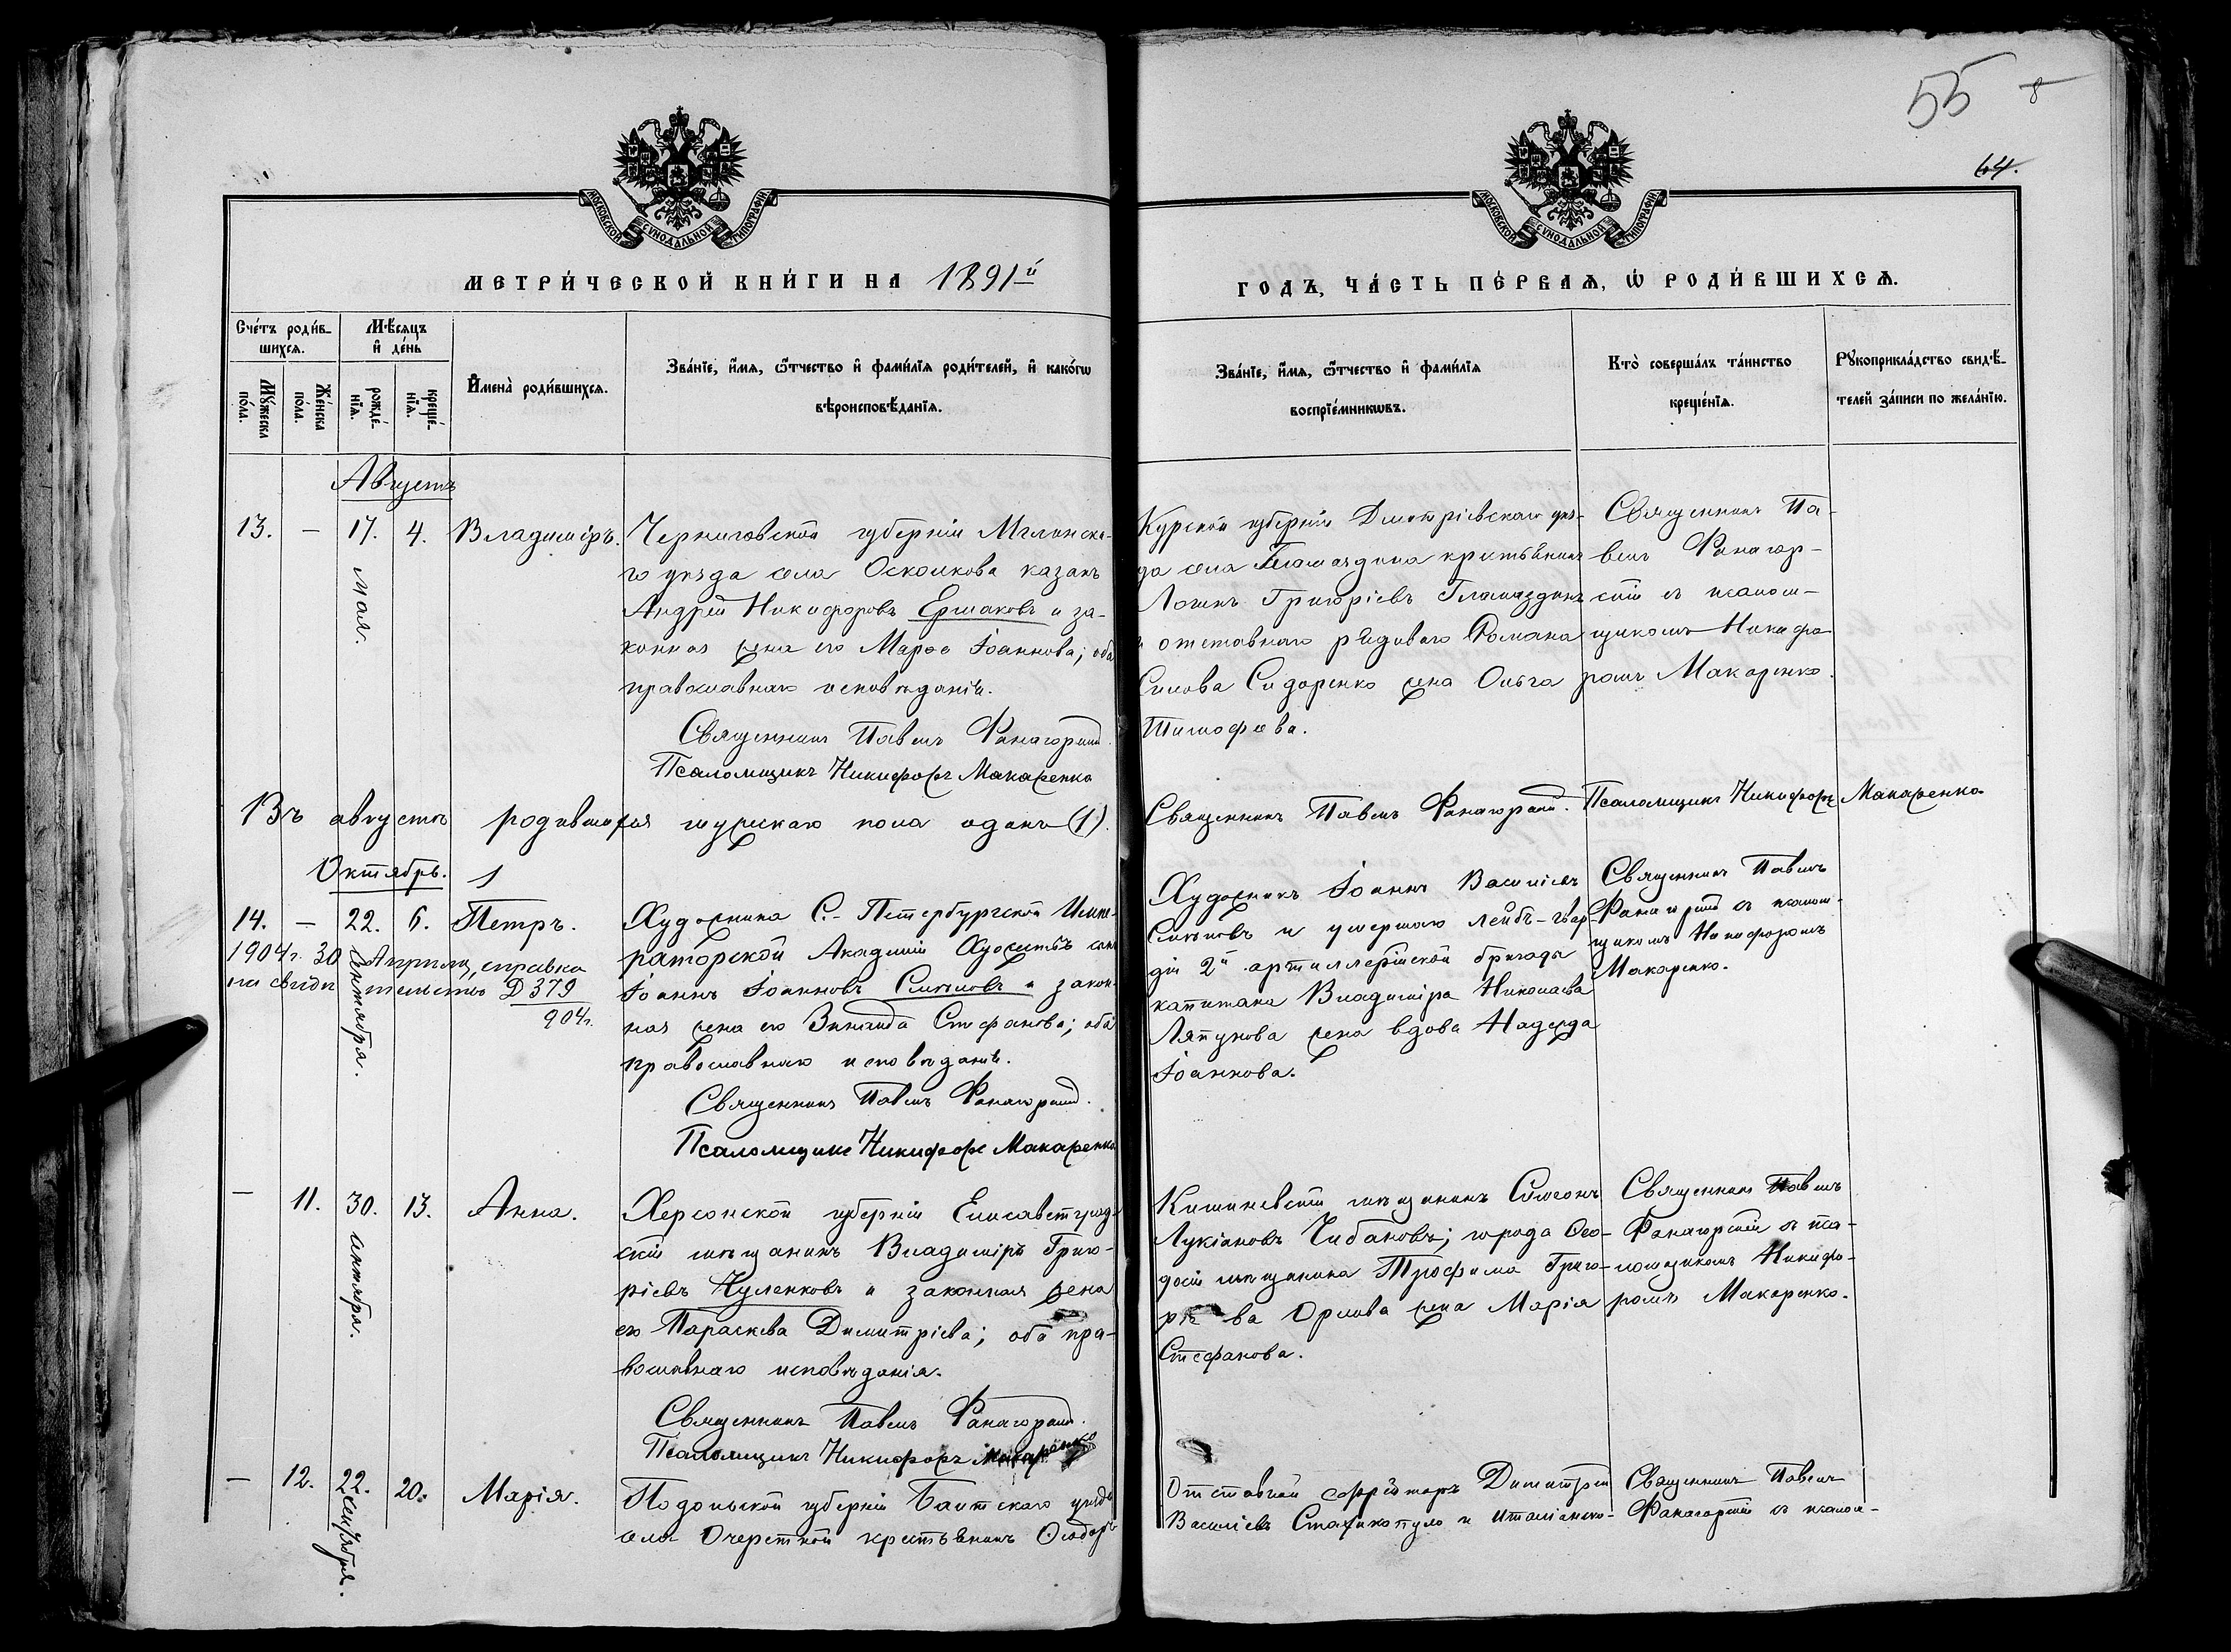 55
64.
МОСКОВСКОЙ СУНОДАЛЬНОЙ ТИПОГРАФІИ
МОСКОВСКОЙ СУНОДАЛЬНОЙ ТИПОГРАФІИ
МЕТРИ́ЧЕСКОЙ КНИ́ГИ НА 1891й
ГОДЪ, ЧА́СТЬ ПЕ́РВАѦ, Ѡ РОДИ́ВШИХСѦ.
Сче́тъ роди́в-
шихсѧ.
Мꙋ́жеска
по́ла.
Же́нска
по́ла.
Мѣ́сѧцъ
и҆ де́нь
рожде́-
нїѧ.
креще́-
нїѧ.
И҆мена̀ роди́вшихсѧ.
Зва́нїе, и҆́мѧ, ѻ҆́тчество и҆ фами́лїѧ роди́телей, и҆ како́гѡ
вѣроисповѣ́данїѧ.
Зва́нїе, и҆́мѧ, ѻ҆́тчество и҆ фами́лїѧ
воспрїе́мникѡвъ.
Кто̀ соверша́лъ та́инство
креще́нїѧ.
Рꙋкоприкла́дство свидѣ́-
телей за́писи по жела́нїю.
Августъ
13. — 17. 4. Владиміръ.
мая.
Черниговской губерніи Мглинска-
го уѣзда села Осколкова казакъ
Андрей Никифоровъ Ермаковъ и за-
конная жена его Марѳа Іоаннова; оба
православнаго исповѣданія.
Священникъ Павелъ Фанагорскій.
Псаломщикъ Никифоръ Макаренко
Курской губерніи Дмитріевскаго уѣз-
да села Гламаздина крестьянинъ
Логинъ Григоріевъ Гламаздинъ
и отставнаго рядоваго Романа
Симова Сидоренко жена Ольга
Тимофеева.
Священникъ Па-
велъ Фанагор-
скій съ псалом-
щикомъ Никифо-
ромъ Макаренко.
Въ августѣ родившихся мужскаго пола одинъ (1).
Священникъ Павелъ Фанагорскій. Псаломщикъ Никифоръ Макаренко
Октябрь. 1
14. — 22. 6. Петръ.
сентября.
1904г. 30 Апрѣля, справка
на свидѣтельство № 379
904г.
Художника С.-Петербургской Импе-
раторской Академіи Художествъ сынъ
Іоаннъ Іоанновъ Симоновъ и закон-
ная жена его Зинаида Стефанова; оба
православнаго исповѣданія.
Священникъ Павелъ Фанагорскій.
Псаломщикъ Никифоръ Макаренко
Художникъ Іоаннъ Василіевъ
и умершаго лейбъ-гвар-
діи 2й артиллерійской бригады
капитана Владиміра Николаева
Ляпунова жена вдова Надежда
Іоаннова.
Священникъ Павелъ
Фанагорскій съ псалом-
щикомъ Никифоромъ
Макаренко.
— 11. 30. 13. Анна.
сентября.
Херсонской губерніи Елисаветград-
скій мѣщанинъ Владиміръ Григо-
ріевъ Куленковъ и законная жена
его Параскева Димитріева; оба пра-
вославнаго исповѣданія.
Священникъ Павелъ Фанагорскій.
Псаломщикъ Никифоръ Макаренко
Кишиневскій мѣщанинъ Симеонъ
Лукіановъ Чибановъ; города Ѳео-
досіи мѣщанина Трофима Григо-
рьева Орлова жена Марія
Стефанова.
Священникъ Павелъ
Фанагорскій съ пса-
ломщикомъ Никифо-
ромъ Макаренко.
— 12. 22. 20. Марія.
сентября.
Подольской губерніи Балтскаго уѣзда
села Очеретной крестьянинъ Ѳеодоръ
Отставной ефрейторъ Димитрій
Василіевъ и италіанско-
Священникъ Павелъ
Фанагорскій съ псалом-